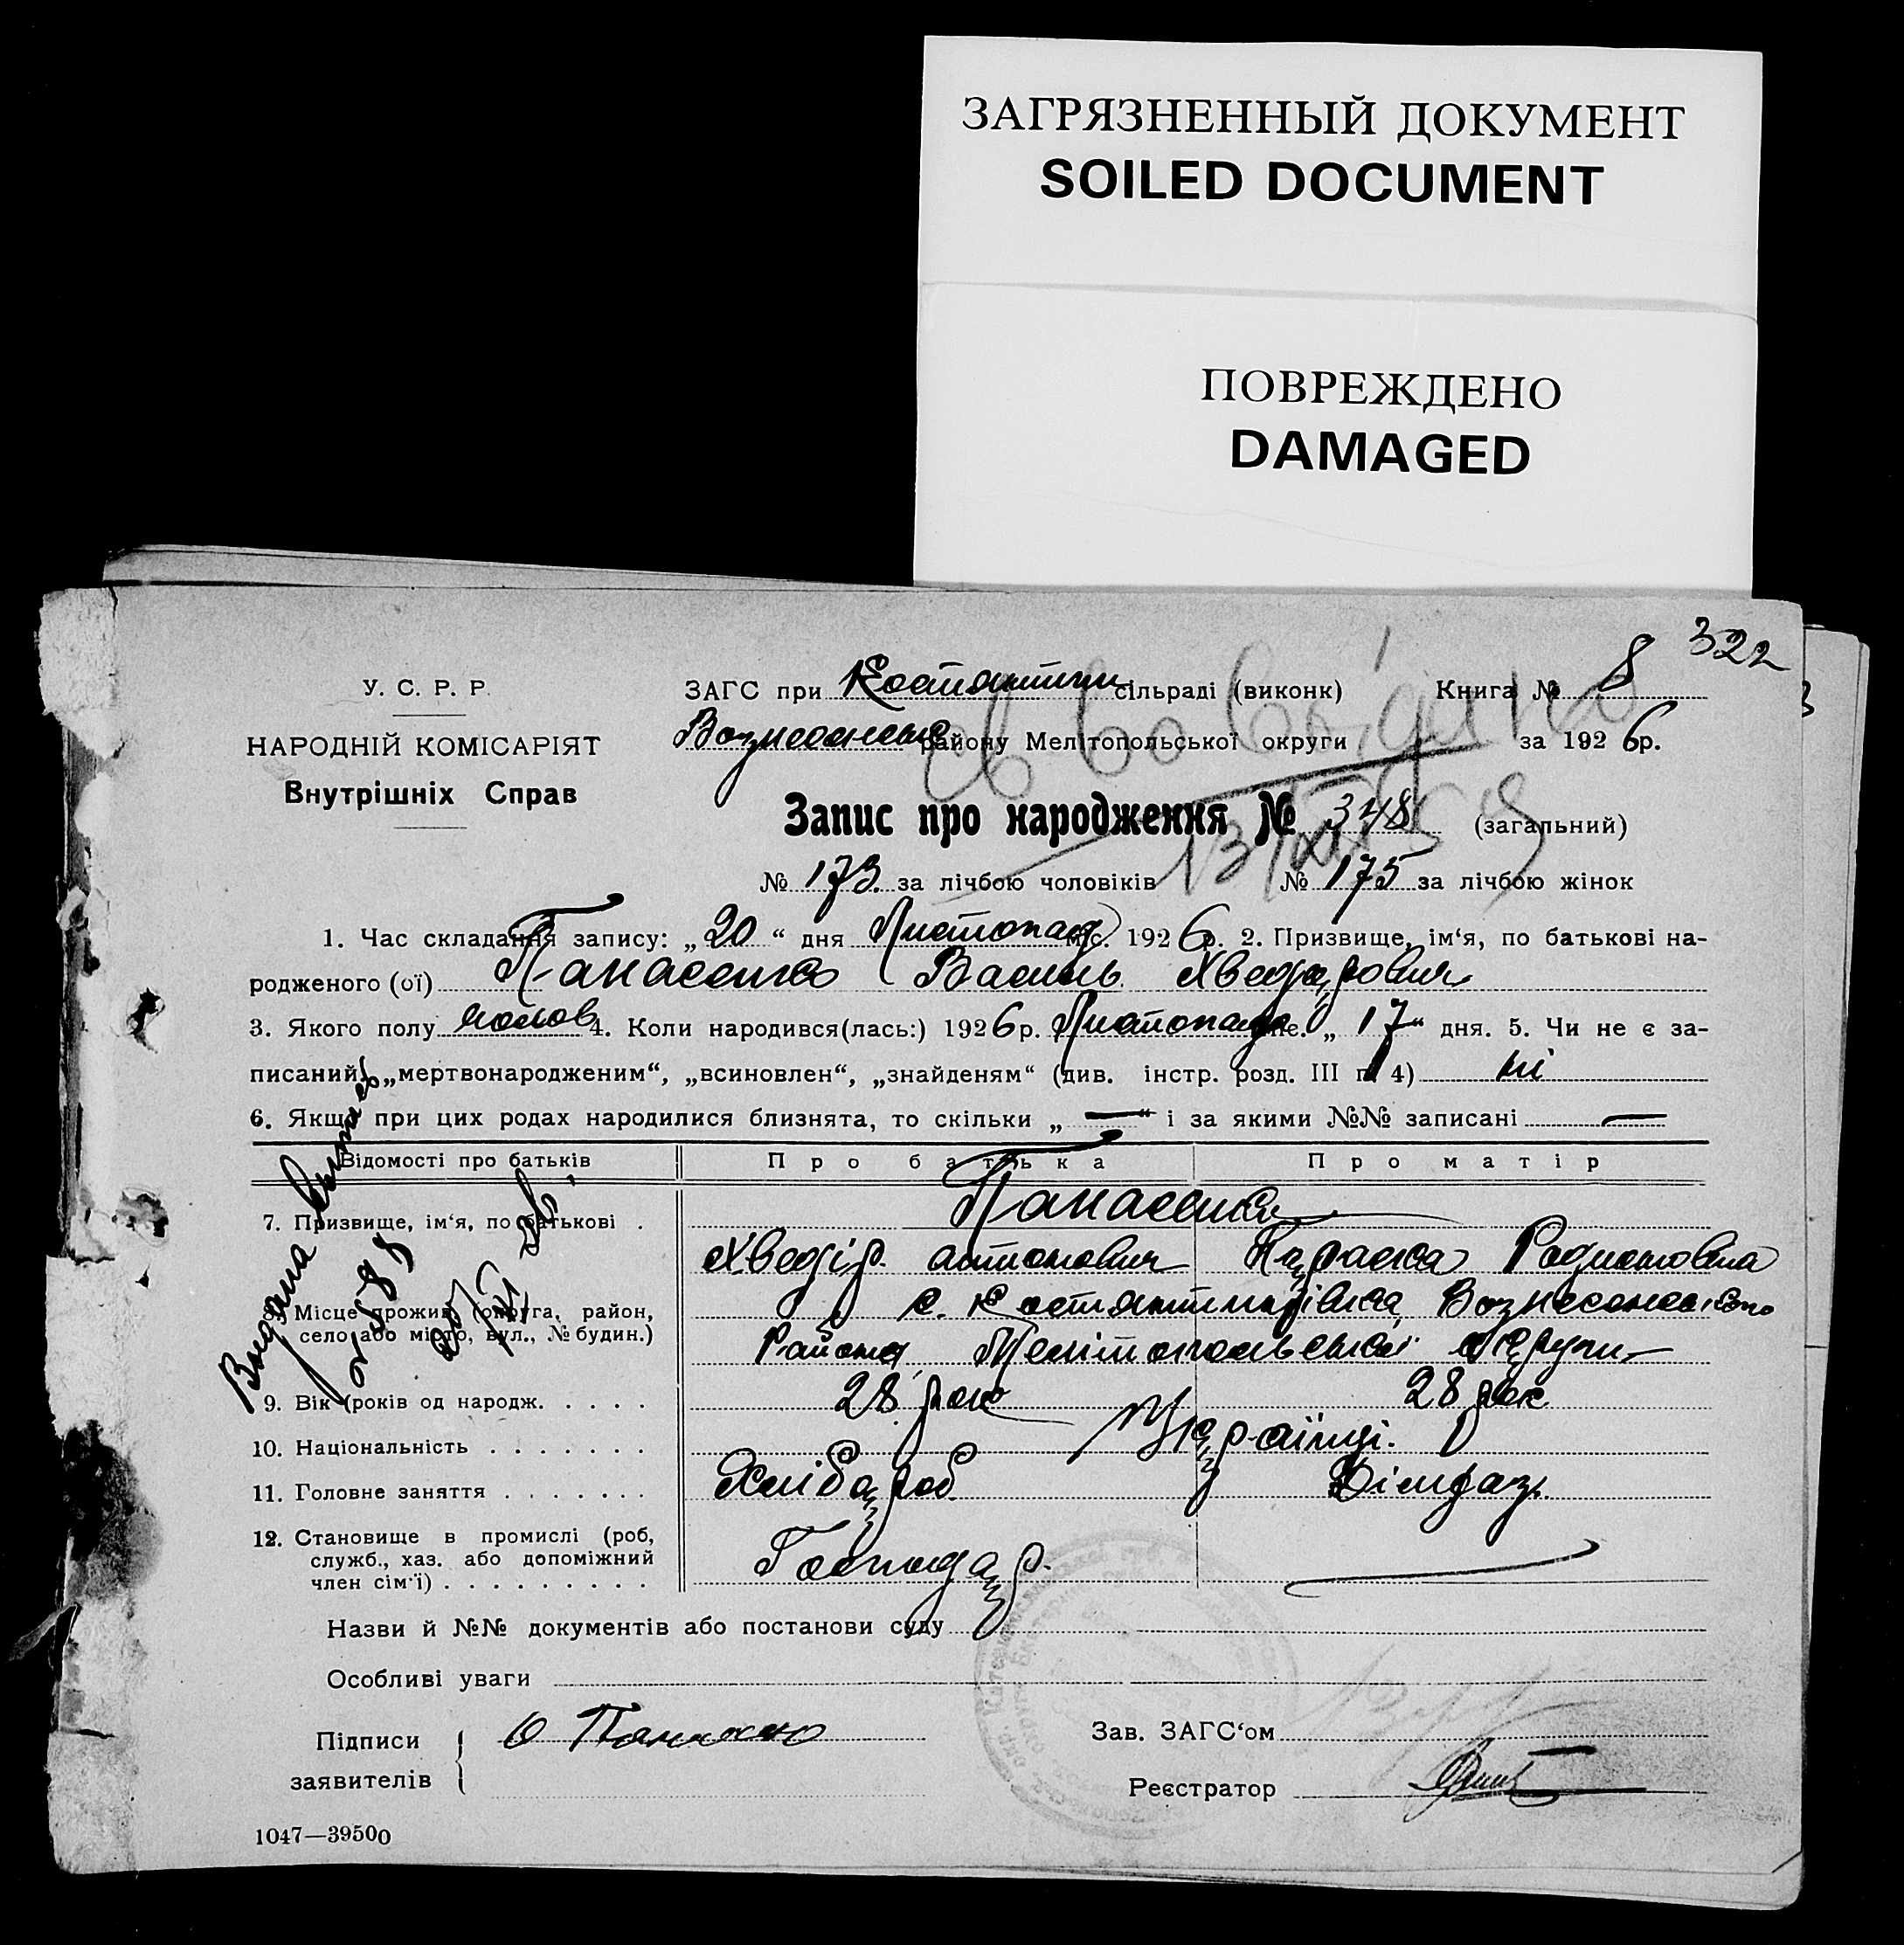 ЗАГРЯЗНЕННЫЙ ДОКУМЕНТ
SOILED DOCUMENT
ПОВРЕЖДЕНО
DAMAGED
322
У. С. Р. Р.
НАРОДНІЙ КОМІСАРІЯТ
Внутрішніх Справ
ЗАГС при Костянтин сільраді (виконк) Книга № 8
району Мелітопольської округи за 1926р.
Запис про народження № 348 (загальний)
№ 173 за лічбою чоловіків № 175 за лічбою жінок
1. Час складання запису: „20“ дня Листопад міс. 1926 р. 2. Призвище, ім‘я, по батькові на-
родженого (ої) Панасенко Василь Хведорович
3. Якого полу чолов 4. Коли народився(лась:) 1926 р. Листопада „17“ дня. 5. Чи не є за-
писаний „мертвонародженим“, „всиновлен“, „знайденям“ (див. інстр. розд. III п 4) ні
6. Якщо при цих родах народилися близнята, то скільки „—“ і за якими №№ записані —
Відомості про батьків Про батька Про матір
7. Призвище, ім‘я, по батькові . Панасенки
Хведір Антонович Параска Родионовна
8. Місце прожив. (округа, район, с. Костянтинівка, Вознесенського
село або місто, вул., № будин.) Району Мелітопольської округи
9. Вік (років од народж. . . . . 28 рок 28 рок
10. Національність . . . . . . . Українці.
11. Головне заняття . . . . . . . Хлібороб
12. Становище в промислі (роб,
служб., хаз. або допоміжний Господар
член сім‘ї) . . . . . . . . .
Назви й №№ документів або постанови суду
Особливі уваги
Підписи
заявителів
Зав. ЗАГС‘ом
Реєстратор
1047—39500